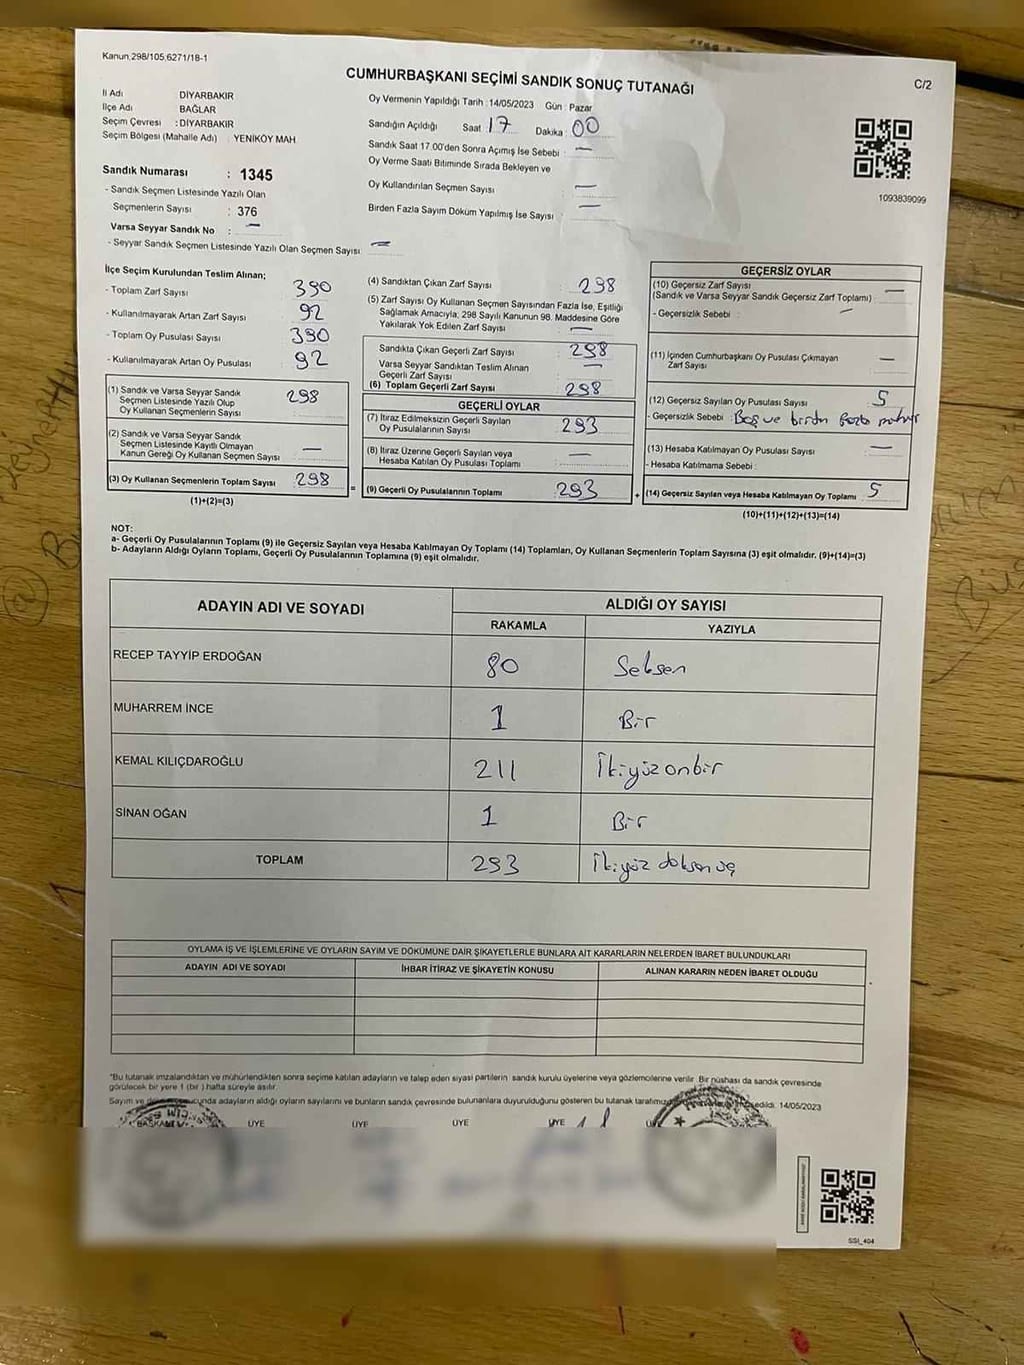 Kanun 298/105,6271/18-1
CUMHURBAŞKANI SEÇİMİ SANDIK SONUÇ TUTANAĞI
C/2
İl Adı DİYARBAKIR
İlçe Adı BAĞLAR
Seçim Çevresi : DİYARBAKIR
Seçim Bölgesi (Mahalle Adı) : YENİKÖY MAH
Oy Vermenin Yapıldığı Tarih : 14/05/2023 Gün : Pazar
Sandığın Açıldığı Saat 17 Dakika : 00
Sandık Saat 17.00'den Sonra Açımış İse Sebebi : —
Oy Verme Saati Bitiminde Sırada Bekleyen ve
Oy Kullandırılan Seçmen Sayısı : —
Birden Fazla Sayım Döküm Yapılmış İse Sayısı : —
1093839099
Sandık Numarası : 1345
- Sandık Seçmen Listesinde Yazılı Olan
Seçmenlerin Sayısı : 376
Varsa Seyyar Sandık No : —
- Seyyar Sandık Seçmen Listesinde Yazılı Olan Seçmen Sayısı: —
İlçe Seçim Kurulundan Teslim Alınan;
- Toplam Zarf Sayısı 390
- Kullanılmayarak Artan Zarf Sayısı 92
- Toplam Oy Pusulası Sayısı 390
- Kullanılmayarak Artan Oy Pusulası 92
(1) Sandık ve Varsa Seyyar Sandık
Seçmen Listesinde Yazılı Olup
Oy Kullanan Seçmenlerin Sayısı 298
(2) Sandık ve Varsa Seyyar Sandık
Seçmen Listesinde Kayıtlı Olmayan
Kanun Gereği Oy Kullanan Seçmen Sayısı —
(3) Oy Kullanan Seçmenlerin Toplam Sayısı 298
(1)+(2)=(3)
(4) Sandıktan Çıkan Zarf Sayısı : 298
(5) Zarf Sayısı Oy Kullanan Seçmen Sayısından Fazla İse, Eşitliği
Sağlamak Amacıyla; 298 Sayılı Kanunun 98. Maddesine Göre
Yakılarak Yok Edilen Zarf Sayısı : —
Sandıkta Çıkan Geçerli Zarf Sayısı : 298
Varsa Seyyar Sandıktan Teslim Alınan
Geçerli Zarf Sayısı —
(6) Toplam Geçerli Zarf Sayısı 298
GEÇERLİ OYLAR
(7) İtiraz Edilmeksizin Geçerli Sayılan
Oy Pusulalarının Sayısı : 293
(8) İtiraz Üzerine Geçerli Sayılan veya
Hesaba Katılan Oy Pusulası Toplamı —
=
(9) Geçerli Oy Pusulalarının Toplamı : 293
GEÇERSİZ OYLAR
(10) Geçersiz Zarf Sayısı
(Sandık ve Varsa Seyyar Sandık Geçersiz Zarf Toplamı) : —
- Geçersizlik Sebebi : —
(11) İçinden Cumhurbaşkanı Oy Pusulası Çıkmayan
Zarf Sayısı : —
(12) Geçersiz Sayılan Oy Pusulası Sayısı : 5
- Geçersizlik Sebebi : Boş ve birden fazla mühür
(13) Hesaba Katılmayan Oy Pusulası Sayısı : —
- Hesaba Katılmama Sebebi :
+
(14) Geçersiz Sayılan veya Hesaba Katılmayan Oy Toplamı : 5
(10)+(11)+(12)+(13)=(14)
NOT:
a- Geçerli Oy Pusulalarının Toplamı (9) ile Geçersiz Sayılan veya Hesaba Katılmayan Oy Toplamı (14) Toplamları, Oy Kullanan Seçmenlerin Toplam Sayısına (3) eşit olmalıdır. (9)+(14)=(3)
b- Adayların Aldığı Oyların Toplamı, Geçerli Oy Pusulalarının Toplamına (9) eşit olmalıdır.
ADAYIN ADI VE SOYADI
ALDIĞI OY SAYISI
RAKAMLA YAZIYLA
RECEP TAYYİP ERDOĞAN 80 Seksen
MUHARREM İNCE 1 Bir
KEMAL KILIÇDAROĞLU 211 İkiyüzonbir
SİNAN OĞAN 1 Bir
TOPLAM 293 İkiyüz doksanüç
OYLAMA İŞ VE İŞLEMLERİNE VE OYLARIN SAYIM VE DÖKÜMÜNE DAİR ŞİKAYETLERLE BUNLARA AİT KARARLARIN NELERDEN İBARET BULUNDUKLARI
ADAYIN ADI VE SOYADI İHBAR İTİRAZ VE ŞİKAYETİN KONUSU ALINAN KARARIN NEDEN İBARET OLDUĞU
*Bu tutanak imzalandıktan ve mühürlendikten sonra seçime katılan adayların ve talep eden siyasi partilerin sandık kurulu üyelerine veya gözlemcilerine verilir. Bir nüshası da sandık çevresinde
görülecek bir yere 1 (bir ) hafta süreyle asılır.
Sayım ve adayların aldığı oyların sayılarını ve bunların sandık çevresinde bulunanlara duyurulduğunu gösteren bu tutanak 14/05/2023
BAŞKAN ÜYE ÜYE ÜYE ÜYE
SSİ_404